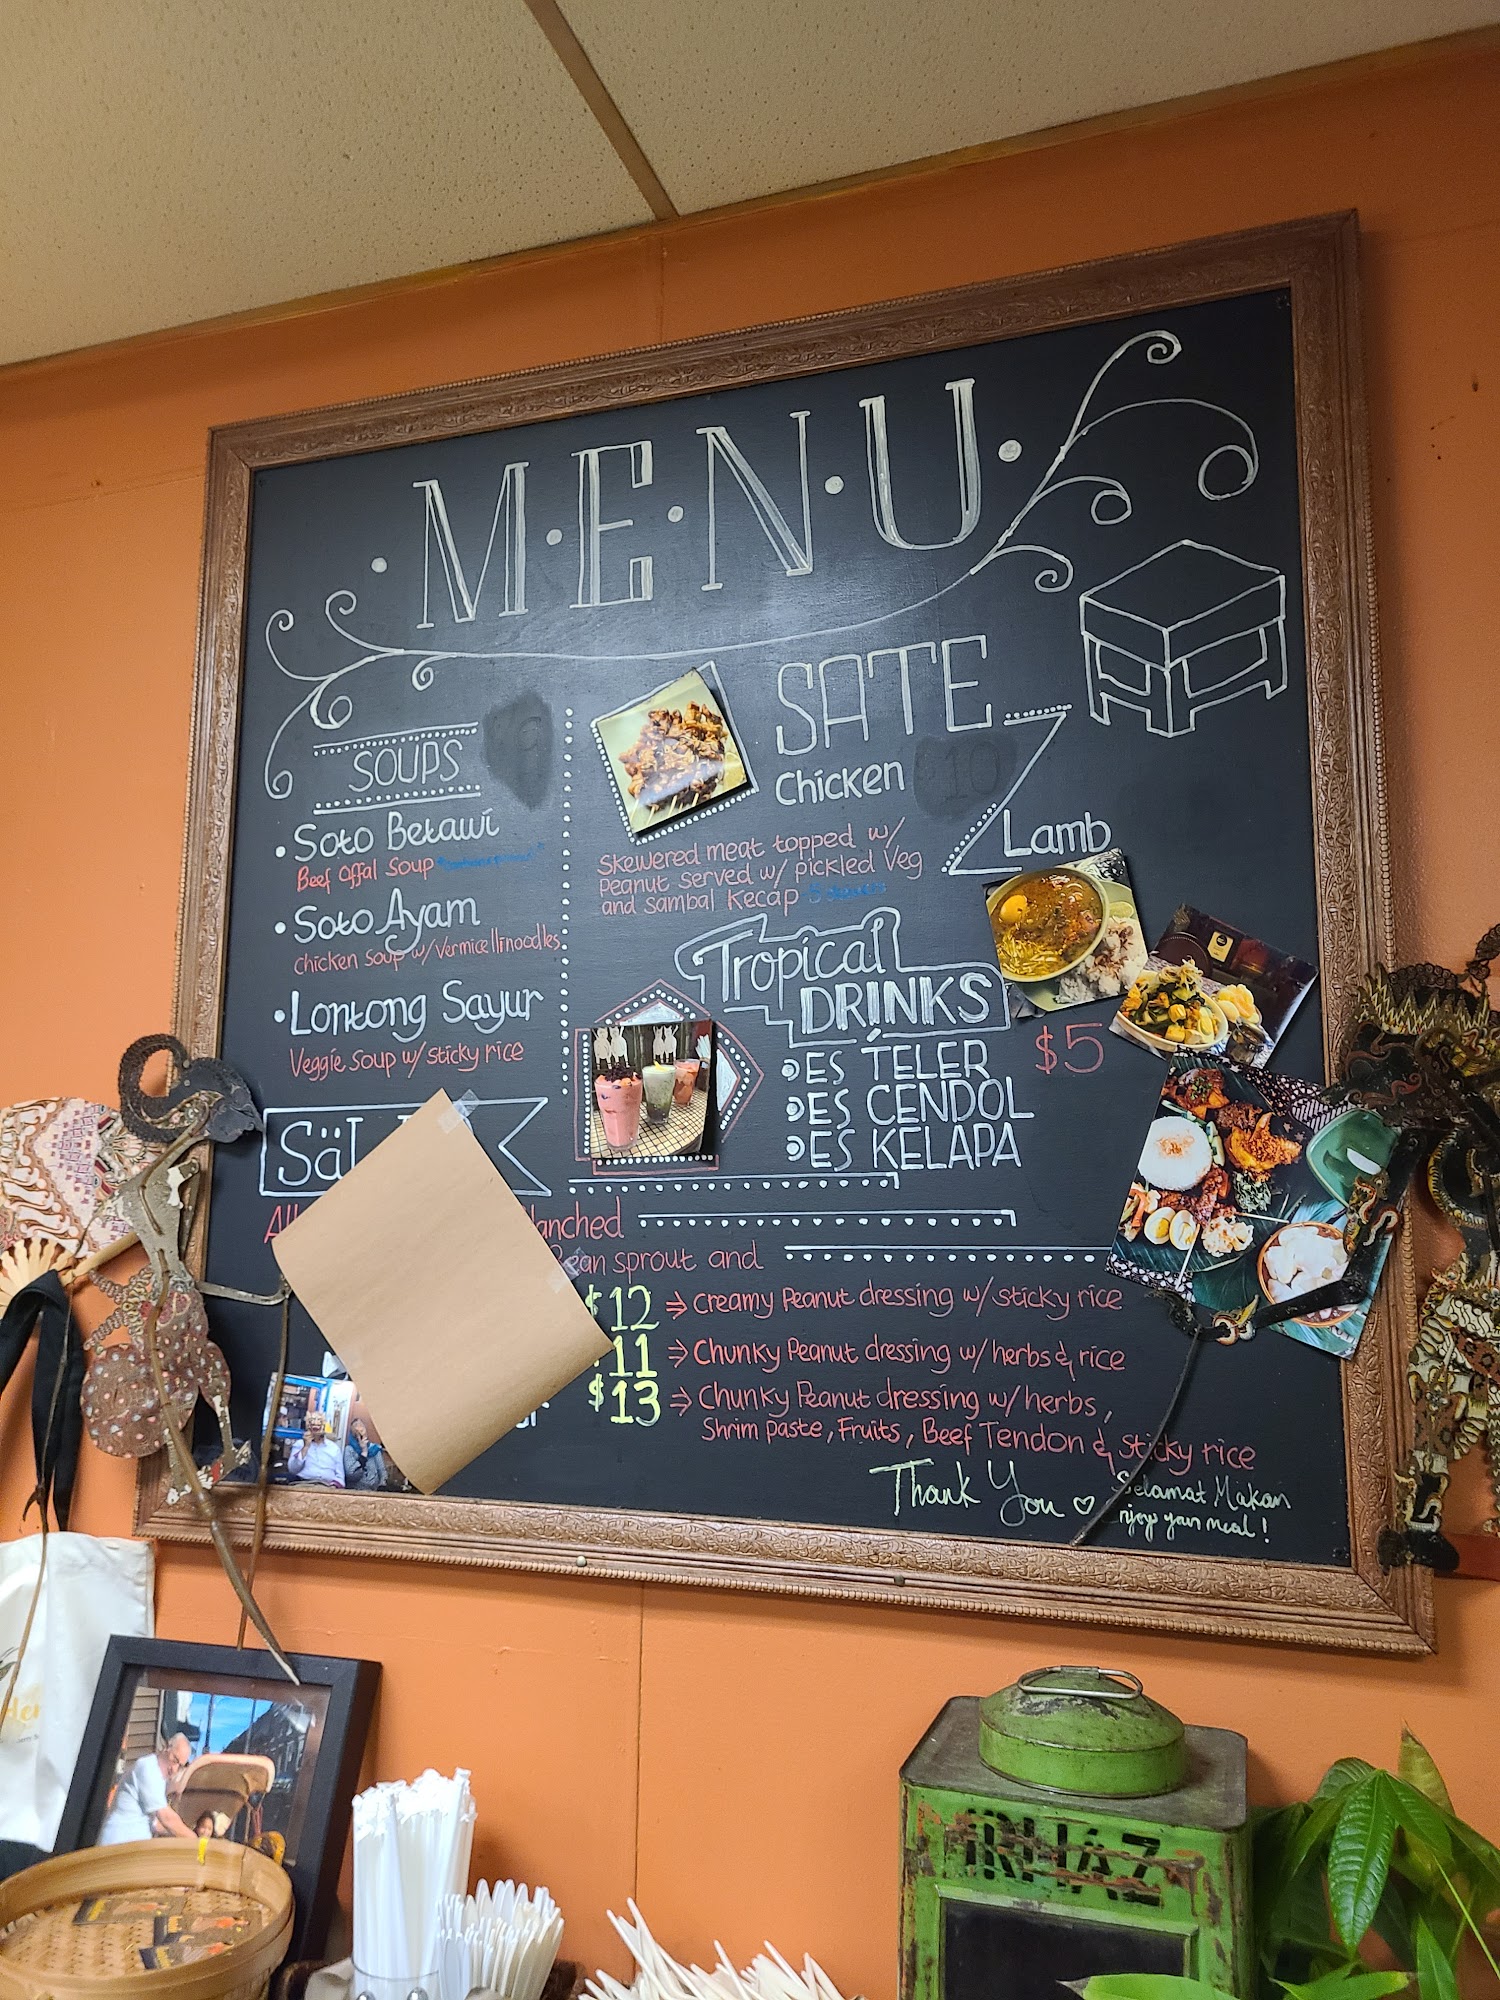 M·E·N·U
SOUPS
Soto Betawi
Beef Offal Soup
Soto Ayam
Chicken Soup w/ Vermicelli noodles
Lontong Sayur
Veggie Soup w/ sticky rice
SATE
Chicken
$10
Lamb
Skewered meat topped w/
Peanut served w/ pickled Veg
and sambal Kecap
Tropical
DRINKS
ES TELER
ES CENDOL
ES KELAPA
$5
Bean sprout and
$12 ⇒ Creamy Peanut dressing w/ sticky rice
11 ⇒ Chunky Peanut dressing w/ herbs & rice
$13 ⇒ Chunky Peanut dressing w/ herbs,
Shrim paste, Fruits, Beef Tendon & sticky rice
Thank You ♡
Selamat Makan
Enjoy your meal!